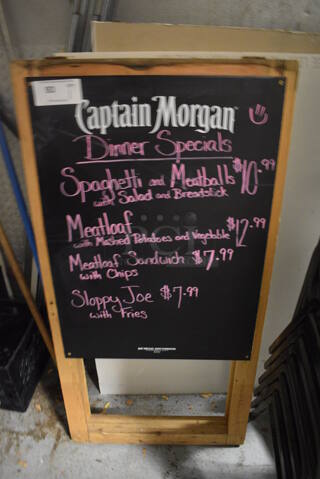 Captain Morgan
Dinner Specials
Spaghetti and Meatballs $10.99
with Salad and Breadstick
Meatloaf $12.99
with Mashed Potatoes and Vegetable
Meatloaf Sandwich $7.99
with Chips
Sloppy Joe $7.99
with Fries